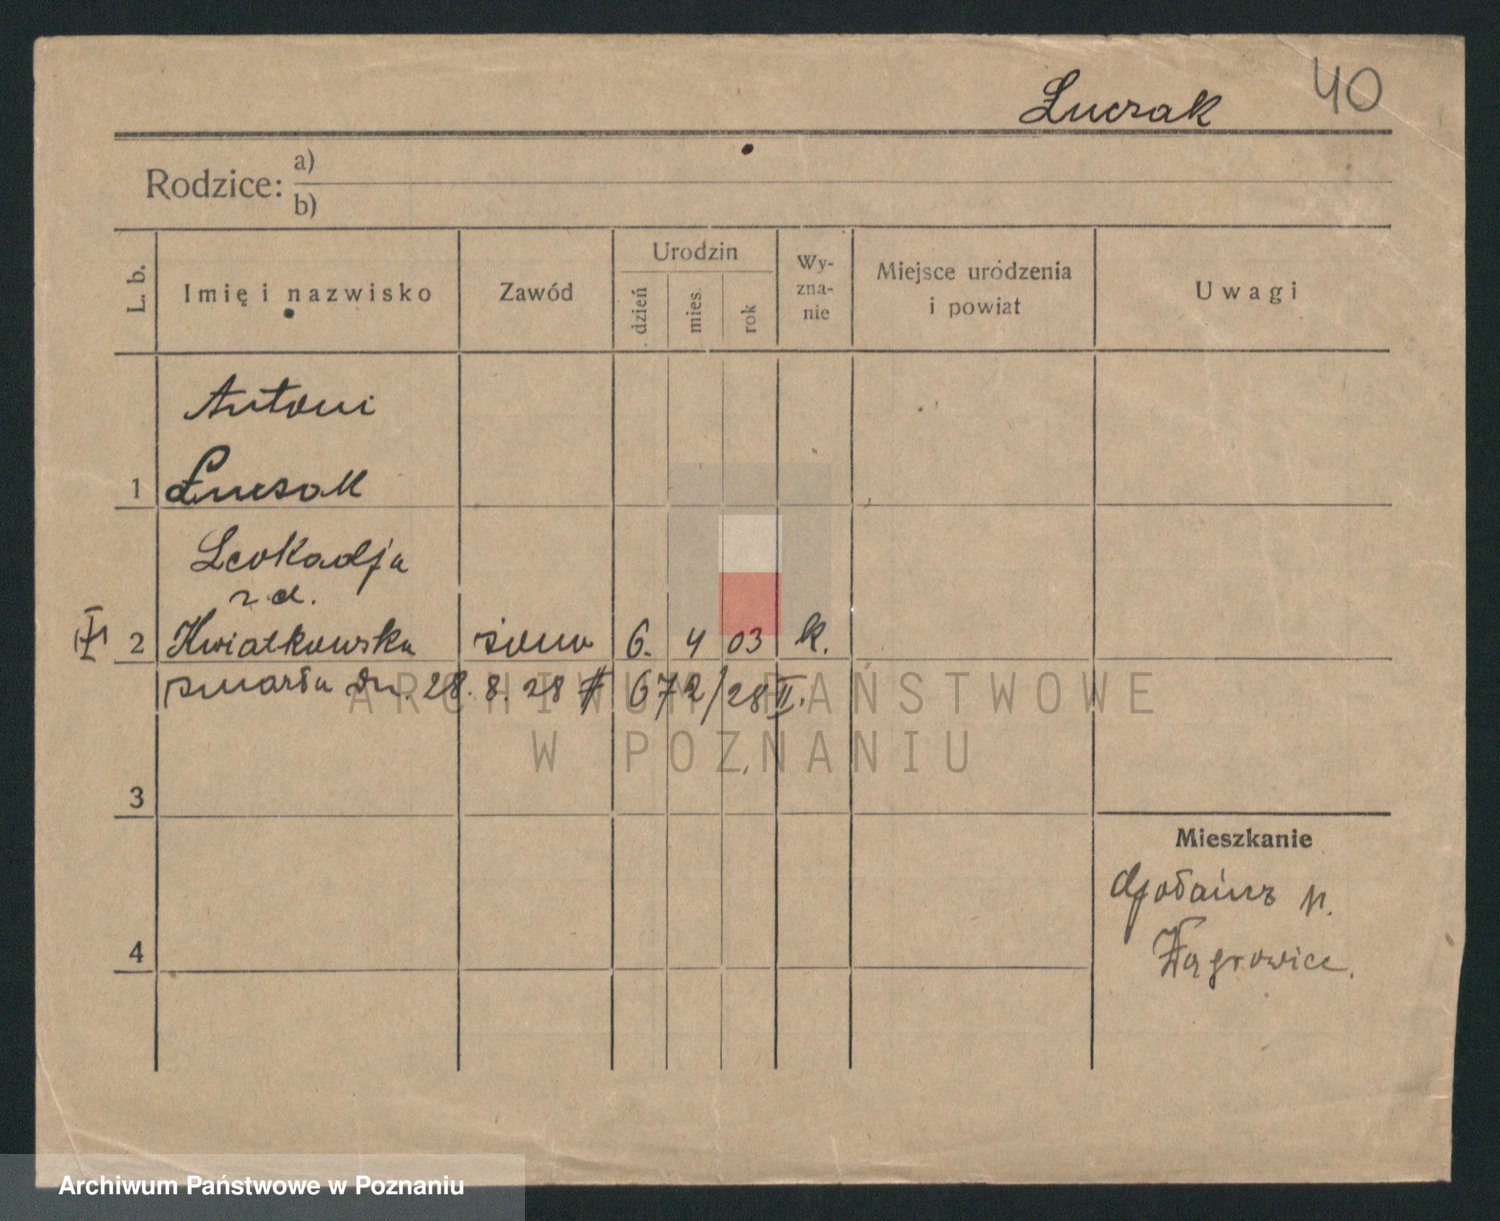 Łuczak 40
Rodzice: a)
b)
L. b. Imię i nazwisko Zawód Urodzin dzień mies. rok Wyznanie Miejsce urodzenia i powiat Uwagi
Antoni
1 Łuczak
Leokadja
z d.
2 Kwiatkowska żona 6. 4 03 k.
zmarła dn. 28. 8. 28 # 672/28 II.
ARCHIWUM PAŃSTWOWE
W POZNANIU
3
Mieszkanie
p.
Wągrowiec.
4
Archiwum Państwowe w Poznaniu